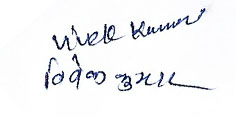 Vivek Kumar
विवेक कुमार